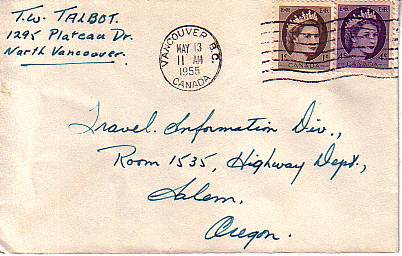 T.W. TALBOT.
1295 Plateau Dr.
North Vancouver.
VANCOUVER B.C.
MAY 13
11 AM
1955
CANADA
E II R
CANADA
1¢ 1¢
E II R
CANADA
4¢
Travel Information Div.,
Room 1535, Highway Dept.,
Salem,
Oregon.